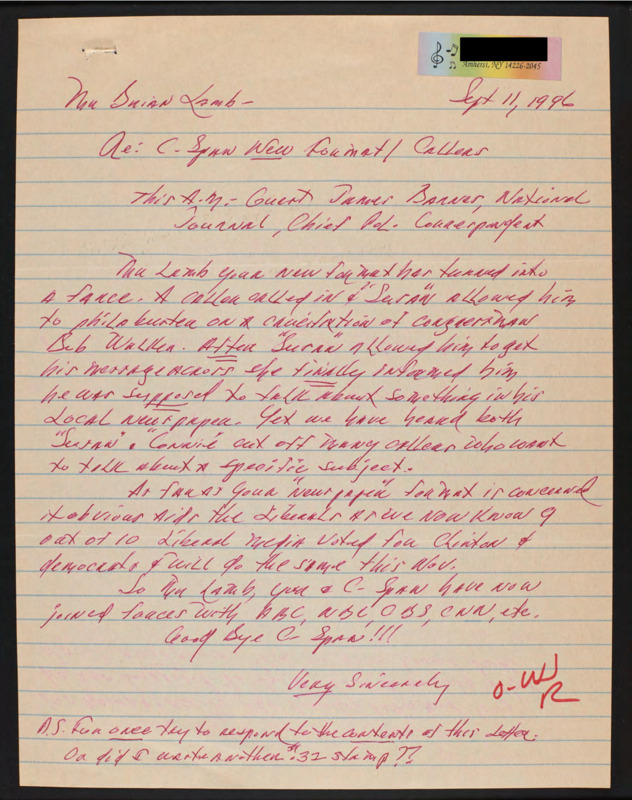 Amherst, NY 14226-2045
Mr Brian Lamb - Sept 11, 1996
Re: C-Span New Format / Callers
This A.M. - Guest James Barnes, National
Journal, Chief Pol. Correspondent
Mr Lamb your new format has turned into
a farce. A caller called in & "Susan" allowed him
to on a of congressman
Bob Walker. After "Susan" allowed him to get
his message across she finally informed him
he was supposed to talk about something in his
Local Newspaper. Yet we have heard both
"Susan" & Connie cut off many callers who want
to talk about a specific subject.
As far as your "Newspaper" format is concerned
it obvious aids the Liberals as we now know 9
out of 10 Liberal media voted for Clinton &
democrats & will do the same this Nov.
So Mr Lamb, you & C-Span have now
joined forces with ABC, NBC, CBS, CNN, etc.
Good Bye C-Span!!!
Very Sincerely
P.S. For once try to respond to the contents of this Letter.
Or did I waste another .32 stamp??